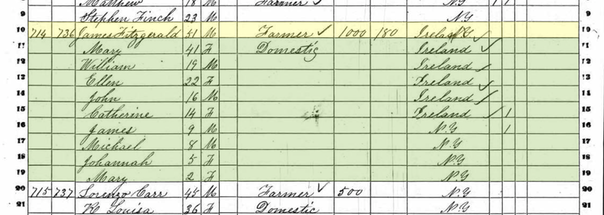 Matthew 18 M Farmer N.Y. 1
9 Stephen Finch 23 M N.Y. 9
10 714 736 James Fitzgerald 51 M Farmer ✓ 1000 180 Ireland ✓ 10
11 Mary 41 F Domestic Ireland ✓ 11
12 William 19 M Ireland ✓ 12
13 Ellen 22 F Ireland ✓ 13
14 John 16 M Ireland ✓ 14
15 Catherine 14 F Ireland ✓ 1 15
16 James 9 M N.Y. 1 16
17 Michael 8 M N.Y. 17
18 Johannah 5 F N.Y. 18
19 Mary 2 F N.Y. 19
20 715 737 Lorenzo Carr 45 M Farmer ✓ 500 N.Y. 20
21 Louisa 36 F Domestic N.Y. 21